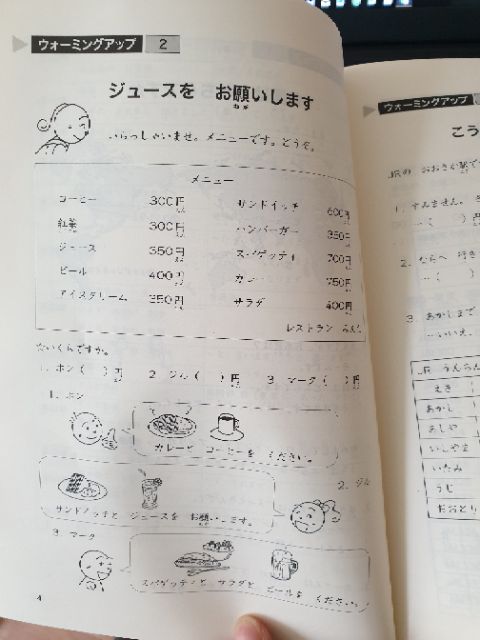 ウォーミングアップ 2
ジュースを お願いします
ねが
いらっしゃいませ。メニューです。どうぞ。
メニュー
コーヒー 300円 サンドイッチ 600円
紅茶 300円 ハンバーガー 350円
ジュース 350円 スパゲッティ 700円
ビール 400円 カレー 750円
アイスクリーム 350円 サラダ 400円
レストラン
☆いくらですか。
1. ホン( )円 2. ジル( )円 3. マーク( )円
1. ホン
カレーと コーヒーを ください。
2. ジル
サンドイッチと ジュースを お願いします。
3. マーク
スパゲッティと サラダと ビールを ください。
4
ウォーミングアップ
こう
JRの おおさか駅で
1. すみません。
…( )
2. ならへ 行き
…( )
3. あかしまで
…いいえ、
JR うんちん
えき
あかし
あしや
いしやま
いたみ
うじ
おおとり